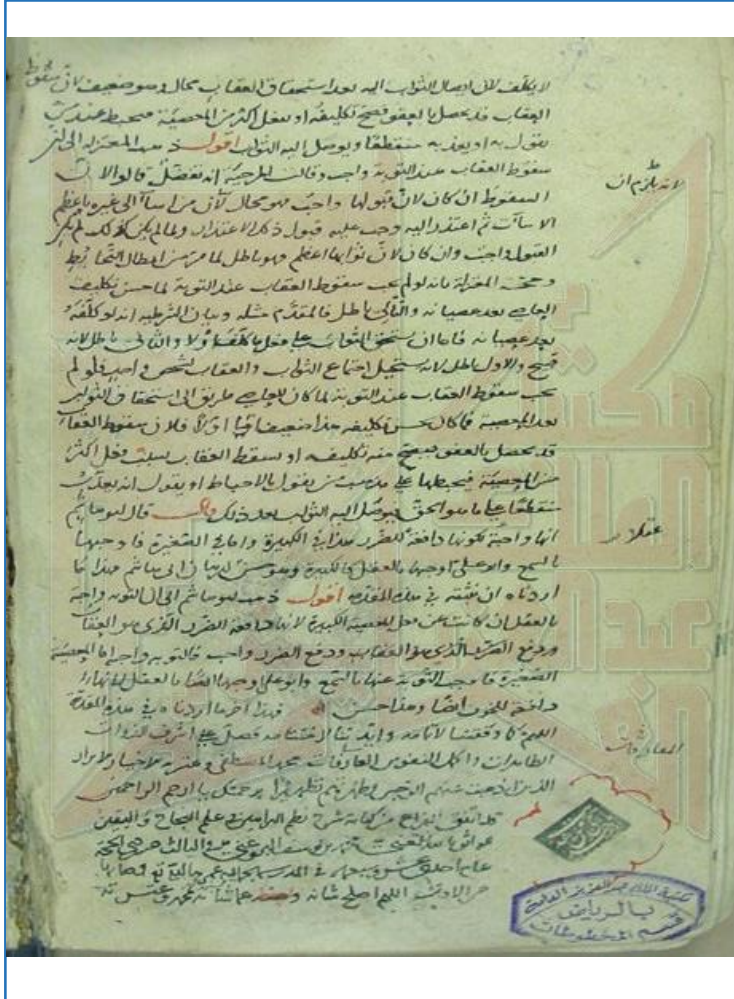 لا يكلف لان ايصال الثواب اليه بعد استحقاق العقاب محال وهو ضعيف لان سقوط
العقاب قد يحصل بالعفو فصح تكليفه او بفعل اكثر من المعصية فيحبط عند من
يقول به او يعذبه منقطعا ويوصل اليه الثواب اقول ذهب المعتزلة الى ان
سقوط العقاب عند التوبة واجب وقالت المرجئة انه تفضل قالوا لان
السقوط ان كان لان قبولها واجب فهو محال لان من اساء الى غيره باعظم
الاساآت ثم اعتذر اليه وجب عليه قبول ذلك الاعتذار ولما لم يكن كذلك لم يكن
القبول واجب وان كان لان ثوابها اعظم فهو باطل لما مر من ابطال التحابط
وحجت المعتزلة بانه لو لم يجب سقوط العقاب عند التوبة لما حسن تكليف
العاصي بعد عصيانه والتالي باطل فالمقدم مثله وبيان الشرطية انه لو كلفه
بعد عصيانه فاما ان يستحق الثواب على فعل ما كلفه اولا والثاني باطل لانه
قبيح والاول باطل لانه يستحيل اجتماع الثواب والعقاب لشخص واحد فلو لم
يجب سقوط العقاب عند التوبة لما كان للعاصي طريق الى استحقاق الثواب
بعد المعصية فما كان يحسن تكليفه هذا ضعيف اما اولا فلان سقوط العقاب
قد يحصل بالعفو فيصح منه تكليفه او يسقط العقاب بسبب فعل اكثر
من المعصية فيحبطها على مذهب من يقول بالاحباط او يقول انه يعذب
منقطعا على ما هو الحق ويوصل اليه الثواب بعد ذلك قال قال ابو هاشم
انها واجبة لكونها دافعة للضرر هذا في الكبيرة واما في الصغيرة فاوجبها
بالسمع وابو علي اوجبها بالعقل كالكبيرة وهو حسن
اردنا ان نثبته في هذه المقدمة اقول ذهب ابو هاشم الى ان التوبة واجبة
بالعقل ان كانت عن فعل المعصية الكبيرة لانها دافعة الضرر الذي هو العقاب
ودفع الضرر الذي هو العقاب ودفع الضرر واجب فالتوبة واجبة اما المعصية
الصغيرة فاوجب التوبة عنها بالسمع وابو علي اوجبها ايضا بالعقل لانها
دافعة للخوف ايضا وهذا حسن فهذا اخر ما اردناه في هذه المقدمة
اللهم كما وفقتنا لاتمامه فصل على اشرف الذوات
الطاهرات واكمل النفوس العارفات محمد المصطفى وعترته الاخيار الابرار
الذين اذهبت عنهم الرجس وطهرتهم تطهيرا برحمتك يا ارحم الراحمين
قد اتفق الفراغ من كتابة شرح نظم البراهين في علم
في المدرسة
اللهم اصلح شانه
لانه يلزم ان
عقلا
مكتبة الملك عبد العزيز العامة
بالرياض
قسم المخطوطات